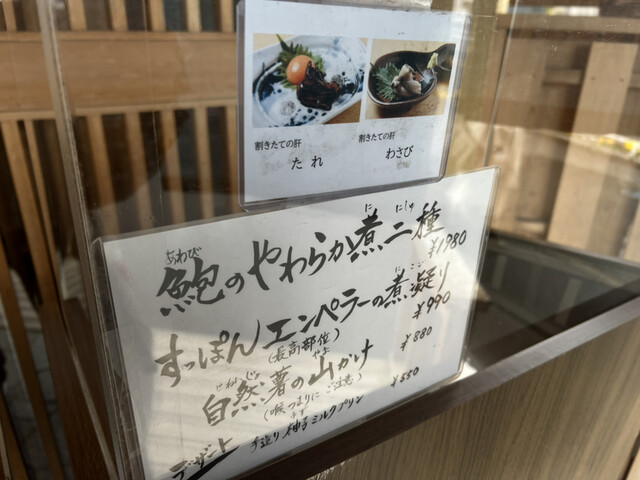 割きたての肝
たれ
割きたての肝
わさび
あわび に にしゅ
鮑のやわらか煮二種
¥1980
にこご
すっぽんエンペラーの煮凝り
(最高部位)
¥990
じねんじょ やま
自然薯の山かけ
¥880
(喉つまりに ご注意)
デザート 手造り 柚子ミルクプリン
ゆず
¥550